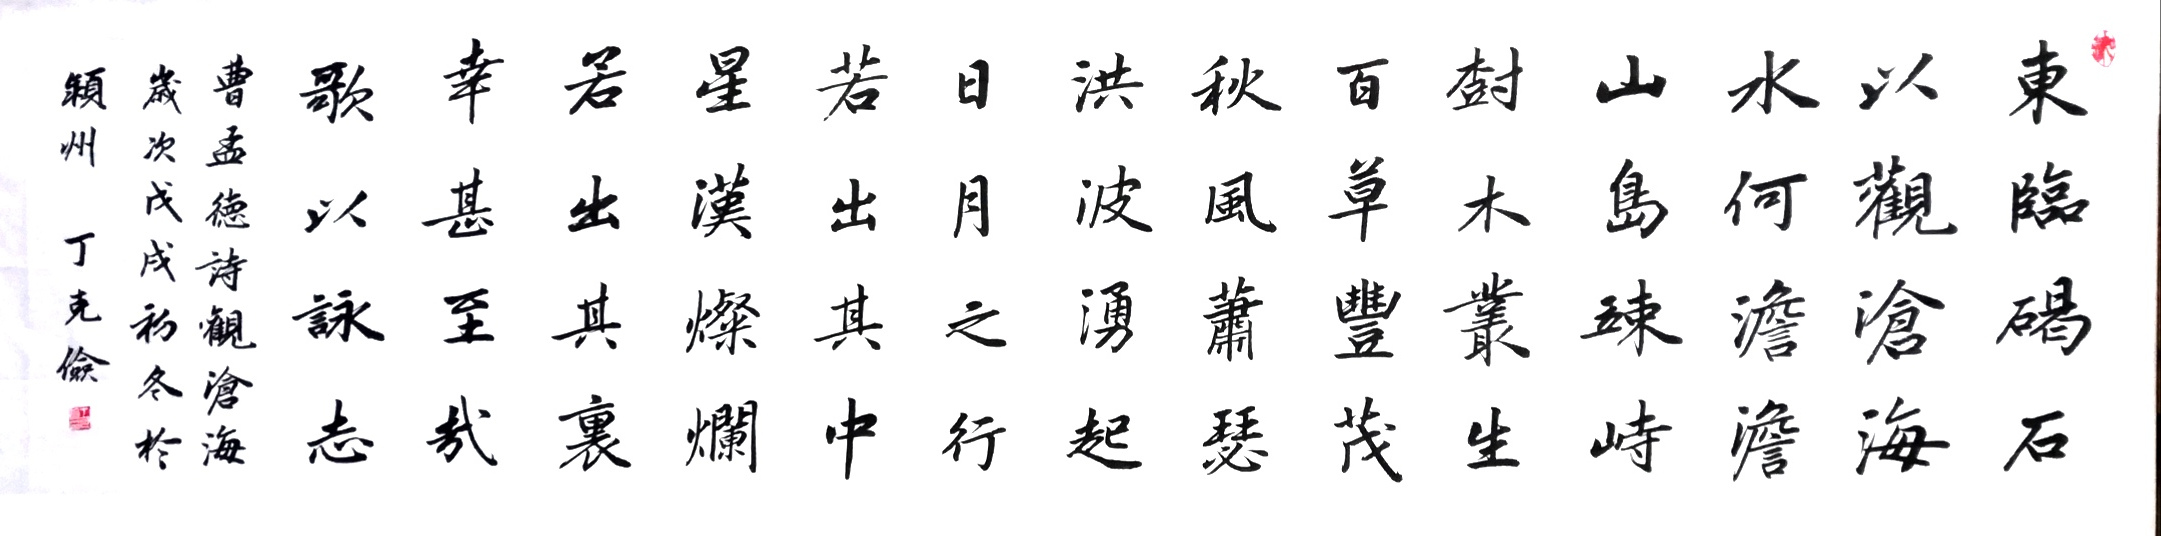 東臨碣石
以觀滄海
水何澹澹
山島竦峙
樹木叢生
百草豐茂
秋風蕭瑟
洪波湧起
日月之行
若出其中
星漢燦爛
若出其裏
幸甚至哉
歌以詠志
曹孟德詩觀滄海
歲次戊戌初冬於
潁州 丁克儉